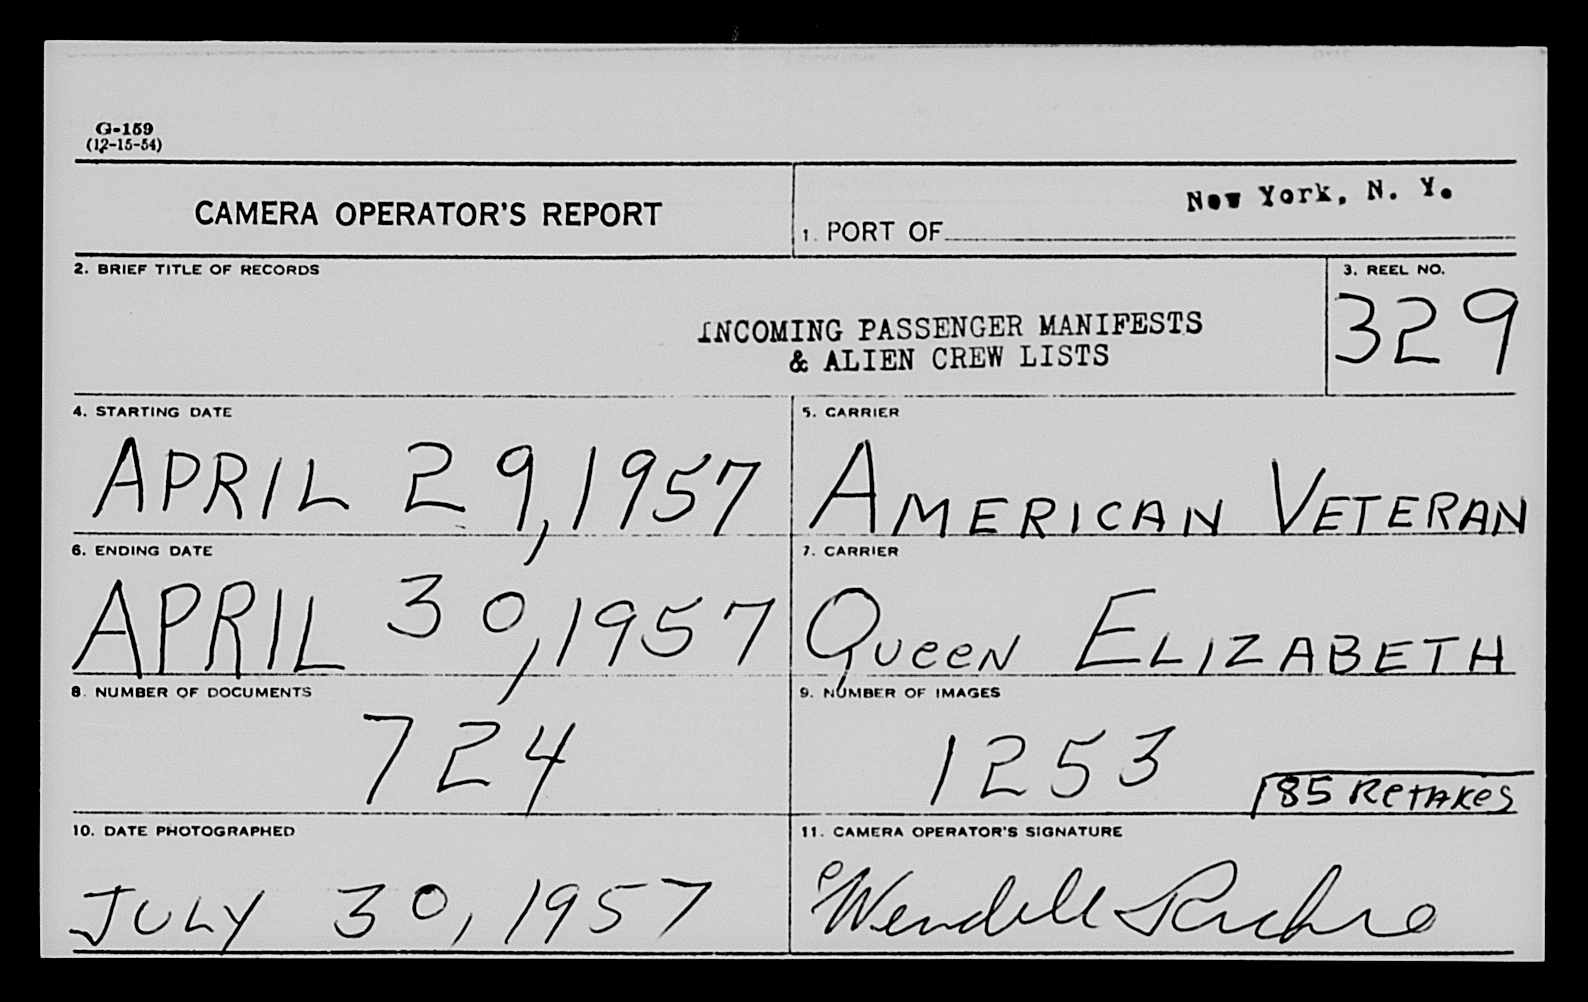 G-159
(12-15-54)
CAMERA OPERATOR'S REPORT
1. PORT OF New York, N. Y.
2. BRIEF TITLE OF RECORDS
INCOMING PASSENGER MANIFESTS
& ALIEN CREW LISTS
3. REEL NO.
329
4. STARTING DATE
APRIL 29, 1957
5. CARRIER
AMERICAN VETERAN
6. ENDING DATE
APRIL 30, 1957
7. CARRIER
QUEEN ELIZABETH
8. NUMBER OF DOCUMENTS
724
9. NUMBER OF IMAGES
1253
85 RETAKES
10. DATE PHOTOGRAPHED
JULY 30, 1957
11. CAMERA OPERATOR'S SIGNATURE
Wendell